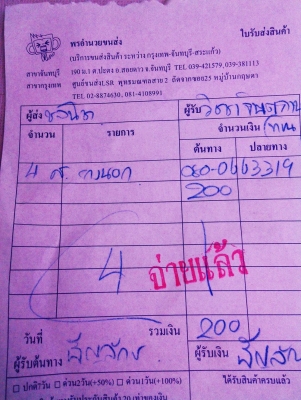 พรอำนวยขนส่ง
ใบรับส่งสินค้า
(บริการขนส่งสินค้า ระหว่าง กรุงเทพ-จันทบุรี-สระแก้ว)
สาขาจันทบุรี 190 ม.1 ต.ปะตง อ.สอยดาว จ.จันทบุรี Tel.039-421579,039-381113
สาขากรุงเทพ ศูนย์ขนส่งLSR พุทธมณฑลสาย 2 ถัดจากซอย25 หมู่บ้านกฤษดา
TEL 02-8874630, 081-4108991
ผู้ส่ง ผู้รับ
จำนวน รายการ จำนวนเงิน
ต้นทาง ปลายทาง
4 080-0663319
200
4 จ่ายแล้ว
วันที่ รวมเงิน 200
ผู้รับต้นทาง ผู้รับเงิน
☐ ปกติ7วัน ☐ ด่วน2วัน(+50%) ☐ ด่วน1วัน(+100%) ได้รับสินค้าครบแล้ว